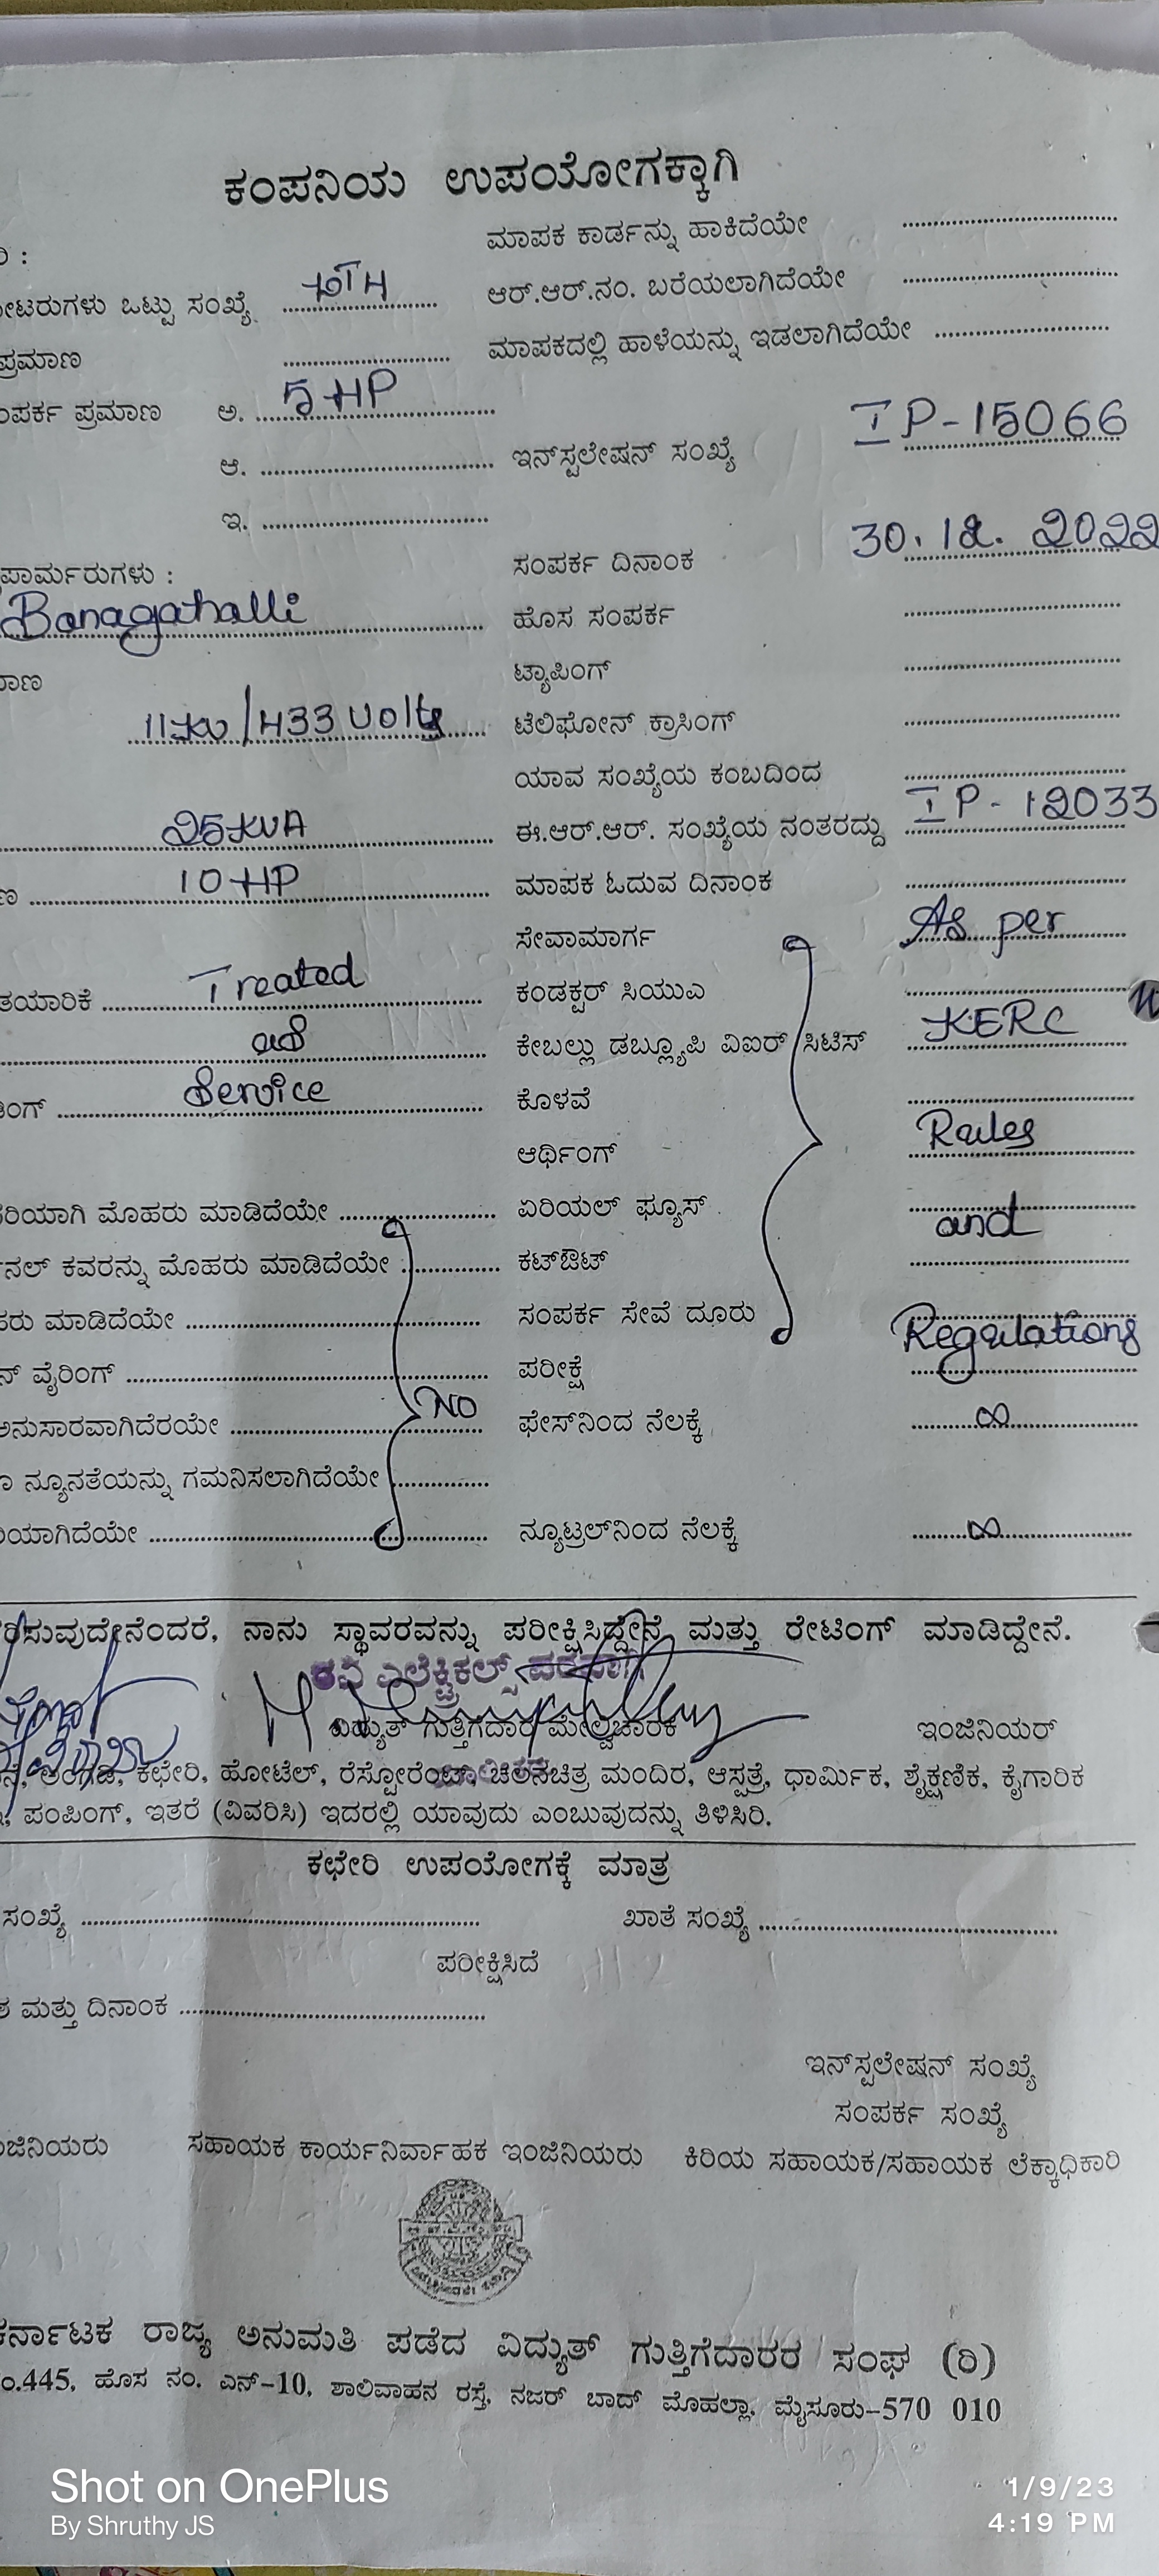 ಕಂಪನಿಯ ಉಪಯೋಗಕ್ಕಾಗಿ
ಮಾಪಕ ಕಾರ್ಡನ್ನು ಹಾಕಿದೆಯೇ
ಒಟ್ಟು ಸಂಖ್ಯೆ ಆರ್.ಆರ್.ನಂ. ಬರೆಯಲಾಗಿದೆಯೇ
ಪ್ರಮಾಣ ಮಾಪಕದಲ್ಲಿ ಹಾಳೆಯನ್ನು ಇಡಲಾಗಿದೆಯೇ
ಪ್ರಮಾಣ ಅ. 5 HP
ಆ. ಇನ್‌ಸ್ಟಲೇಷನ್ ಸಂಖ್ಯೆ IP-15066
ಇ.
ಸಂಪರ್ಕ ದಿನಾಂಕ 30.12.2022
Banagahalli ಹೊಸ ಸಂಪರ್ಕ
ಟ್ಯಾಪಿಂಗ್
11KV/433 Volts ಟೆಲಿಫೋನ್ ಕ್ರಾಸಿಂಗ್
ಯಾವ ಸಂಖ್ಯೆಯ ಕಂಬದಿಂದ
25KVA ಈ.ಆರ್.ಆರ್. ಸಂಖ್ಯೆಯ ನಂತರದ್ದು IP-12033
10 HP ಮಾಪಕ ಓದುವ ದಿನಾಂಕ
ಸೇವಾಮಾರ್ಗ As per
ತಯಾರಿಕೆ Treated ಕಂಡಕ್ಟರ್ ಸಿಯುಎ
as ಕೇಬಲ್ಲು ಡಬ್ಲ್ಯೂಪಿ ವಿಐರ್ ಸಿಟಿಸ್ KERC
Service ಕೊಳವೆ
ಆರ್ಥಿಂಗ್ Rules
ಮೊಹರು ಮಾಡಿದೆಯೇ ಏರಿಯಲ್ ಫ್ಯೂಸ್ and
ಕವರನ್ನು ಮೊಹರು ಮಾಡಿದೆಯೇ ಕಟ್‌ಔಟ್
ಮಾಡಿದೆಯೇ ಸಂಪರ್ಕ ಸೇವೆ ದೂರು Regulations
ವೈರಿಂಗ್ ಪರೀಕ್ಷೆ
ಅನುಸಾರವಾಗಿದೆರಯೇ NO ಫೇಸ್‌ನಿಂದ ನೆಲಕ್ಕೆ ∞
ನ್ಯೂನತೆಯನ್ನು ಗಮನಿಸಲಾಗಿದೆಯೇ
ನ್ಯೂಟ್ರಲ್‌ನಿಂದ ನೆಲಕ್ಕೆ ∞
ನಾನು ಸ್ಥಾವರವನ್ನು ಪರೀಕ್ಷಿಸಿದ್ದೇನೆ ಮತ್ತು ರೇಟಿಂಗ್ ಮಾಡಿದ್ದೇನೆ.
ರವಿ ಎಲೆಕ್ಟ್ರಿಕಲ್ಸ್ ಪರವಾಗಿ
ವಿದ್ಯುತ್ ಗುತ್ತಿಗೆದಾರ ಮೇಲ್ವಿಚಾರಕ ಇಂಜಿನಿಯರ್
ಕಛೇರಿ, ಹೋಟೆಲ್, ರೆಸ್ಟೋರೆಂಟ್, ಚಲನಚಿತ್ರ ಮಂದಿರ, ಆಸ್ಪತ್ರೆ, ಧಾರ್ಮಿಕ, ಶೈಕ್ಷಣಿಕ, ಕೈಗಾರಿಕ
ಪಂಪಿಂಗ್, ಇತರೆ (ವಿವರಿಸಿ) ಇದರಲ್ಲಿ ಯಾವುದು ಎಂಬುವುದನ್ನು ತಿಳಿಸಿರಿ.
ಕಛೇರಿ ಉಪಯೋಗಕ್ಕೆ ಮಾತ್ರ
ಸಂಖ್ಯೆ ಖಾತೆ ಸಂಖ್ಯೆ
ಪರೀಕ್ಷಿಸಿದೆ
ಮತ್ತು ದಿನಾಂಕ
ಇನ್‌ಸ್ಟಲೇಷನ್ ಸಂಖ್ಯೆ
ಸಂಪರ್ಕ ಸಂಖ್ಯೆ
ಸಹಾಯಕ ಕಾರ್ಯನಿರ್ವಾಹಕ ಇಂಜಿನಿಯರು ಕಿರಿಯ ಸಹಾಯಕ/ಸಹಾಯಕ ಲೆಕ್ಕಾಧಿಕಾರಿ
ಕರ್ನಾಟಕ ರಾಜ್ಯ ಅನುಮತಿ ಪಡೆದ ವಿದ್ಯುತ್ ಗುತ್ತಿಗೆದಾರರ ಸಂಘ (ರಿ)
ನಂ.445, ಹೊಸ ನಂ. ಎನ್-10, ಶಾಲಿವಾಹನ ರಸ್ತೆ, ನಜರ್ ಬಾದ್ ಮೊಹಲ್ಲಾ, ಮೈಸೂರು-570 010
Shot on OnePlus
By Shruthy JS
1/9/23
4:19 PM